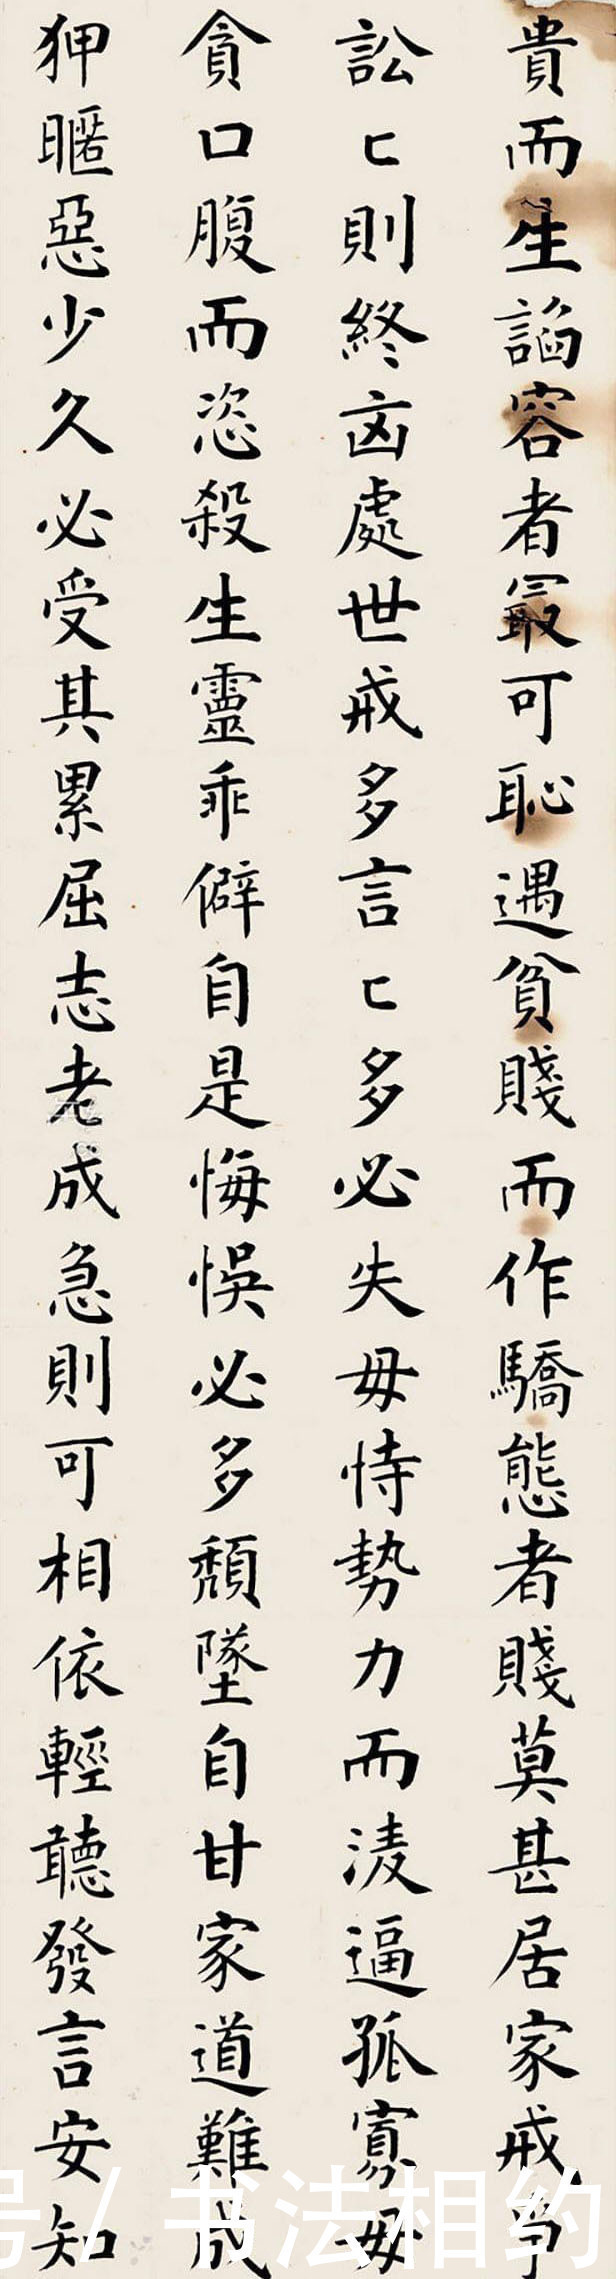 貴而生謟容者冣可恥遇貧賤而作驕態者賤莫甚居家戒爭
訟匕則終凶處世戒多言匕多必失毋恃勢力而淩逼孤寡毋
貪口腹而恣殺生靈乖僻自是悔悞必多頹墜自甘家道難成
狎暱惡少久必受其累屈志老成急則可相依輕聽發言安知
号/书法相约